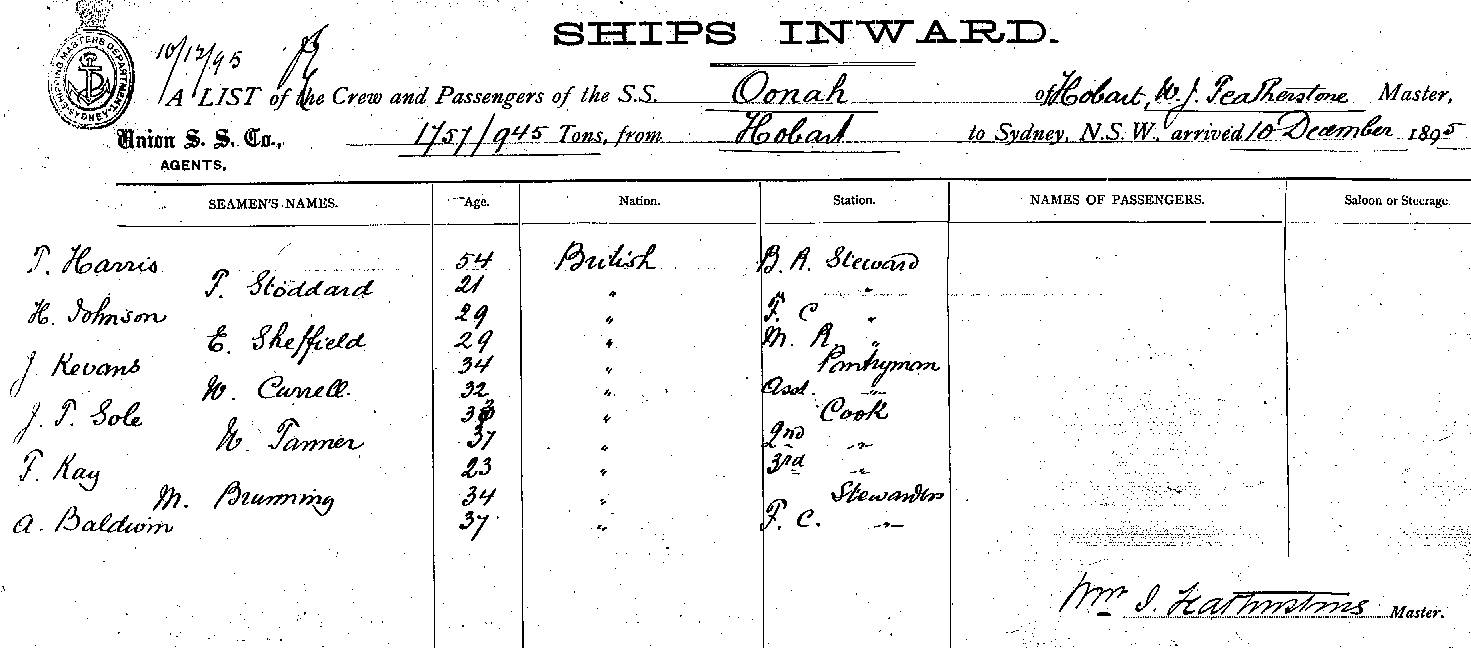 SHIPS INWARD.
SHIPPING MASTERS DEPARTMENT SYDNEY
10/12/95
A LIST of the Crew and Passengers of the S.S. Oonah of Hobart, W. J. Featherstone Master,
Union S. S. Co., 1757/945 Tons, from Hobart to Sydney, N.S.W. arrived 10 December 1895
AGENTS,
SEAMEN'S NAMES. Age. Nation. Station. NAMES OF PASSENGERS. Saloon or Steerage.
T. Harris 54 British B. R. Steward
T. Stoddard 21 " "
H. Johnson 29 " F. C "
E. Sheffield 29 " M. R "
J Kevans 34 " Pantryman
W. Currell. 32 " Asst. "
J. T. Sole " Cook
W. Tanner 37 " 2nd "
T. Kay 23 " 3rd "
M. Brunning 34 " Stewardess
A. Baldwin 37 " F. C. "
Wm J. Featherstone Master.